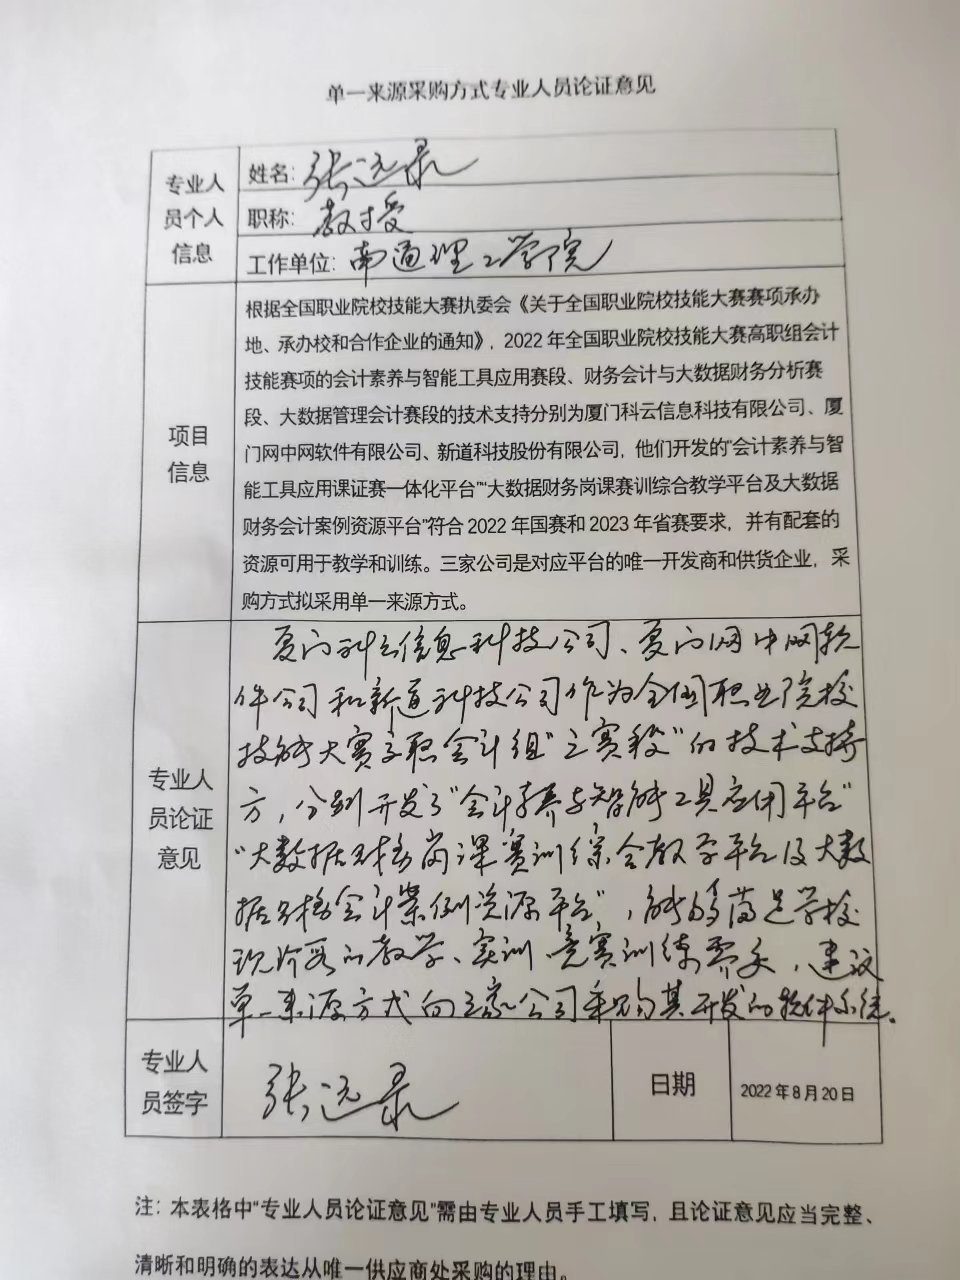 单一来源采购方式专业人员论证意见
专业人
员个人
信息
姓名：张远录
职称：教授
工作单位：南通理工学院
项目
信息
根据全国职业院校技能大赛执委会《关于全国职业院校技能大赛赛项承办
地、承办校和合作企业的通知》，2022年全国职业院校技能大赛高职组会计
技能赛项的会计素养与智能工具应用赛段、财务会计与大数据财务分析赛
段、大数据管理会计赛段的技术支持分别为厦门科云信息科技有限公司、厦
门网中网软件有限公司、新道科技股份有限公司，他们开发的“会计素养与智
能工具应用课证赛一体化平台”“大数据财务岗课赛训综合教学平台及大数据
财务会计案例资源平台”符合2022年国赛和2023年省赛要求，并有配套的
资源可用于教学和训练。三家公司是对应平台的唯一开发商和供货企业，采
购方式拟采用单一来源方式。
专业人
员论证
意见
厦门科云信息科技公司、厦门网中网软
件公司和新道科技公司作为全国职业院校
技能大赛高职会计组“三赛段”的技术支持
方，分别开发了“会计素养与智能工具应用平台”
“大数据财务岗课赛训综合教学平台及大数
据财务会计案例资源平台”，能够满足学校
现阶段的教学、实训、竞赛训练需求，建议
单一来源方式向三家公司采购其开发的软件系统。
专业人
员签字
张远录
日期
2022年8月20日
注：本表格中“专业人员论证意见”需由专业人员手工填写，且论证意见应当完整、
清晰和明确的表达从唯一供应商处采购的理由。